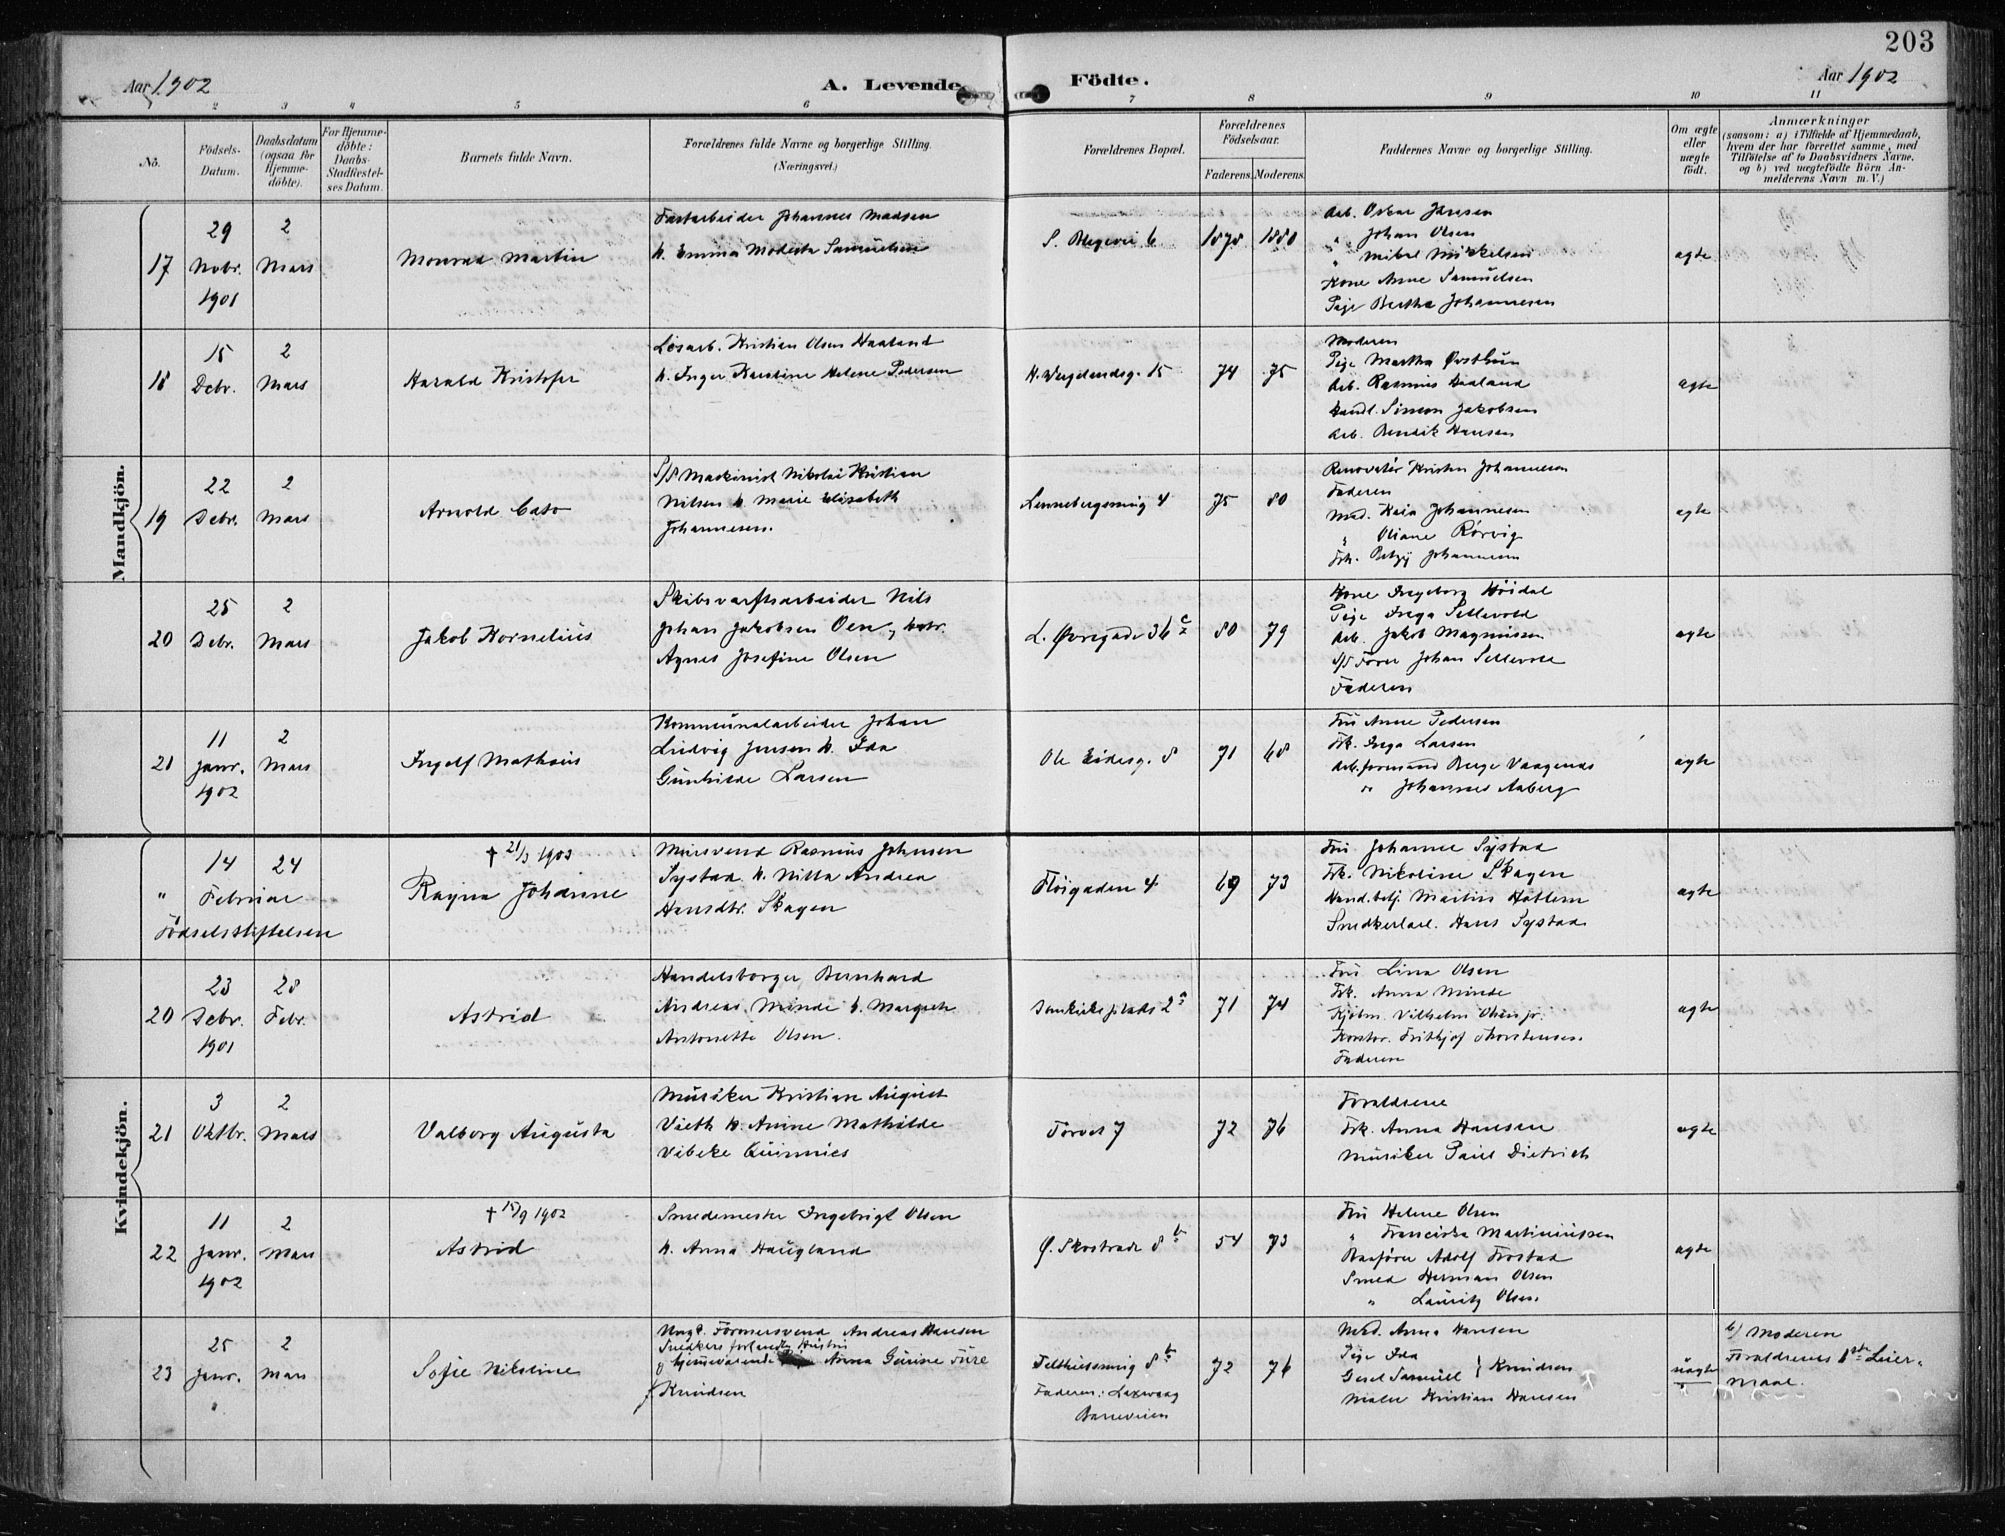 203
Aar 1902
A. Levende Födte.
Aar 1902
2 3 4 5 6 7 8 9 10 11
No.
Födsels-
Datum.
Daabsdatum
(ogsaa for
Hjemme-
döbte).
For Hjemme-
döbte:
Daabs-
Stadfæstel-
ses Datum.
Barnets fulde Navn.
Forældrenes fulde Navne og borgerlige Stilling.
(Næringsvei.)
Forældrenes Bopæl.
Forældrenes
Födselsaar.
Faderens.
Moderens.
Faddernes Navne og borgerlige Stilling.
Om ægte
eller
uægte
födt.
Anmærkninger
(saasom: a) i Tilfælde af Hjemmedaab,
hvem der har forrettet samme, med
Tilföielse af to Daabsvidners Navne,
og b) ved uægtefödte Börn An-
melderens Navn m. V.)
Mandkjön.
17
29
Novbr.
1901
2
Mars
Monrad Martin
Fastarbeider Johannes Madsen
h. Emma Modesta Samuelsen
6
1878
1880
Arb. Oskar Jansen
" Johan Olsen
" Mikal Mikkelsen
Kone Anne Samuelsen
Pige Bertha Johannesen
ægte
18
15
Decbr.
2
Mars
Harald Kristofer
Løsarb. Kristian Olsen Haaland
h. Inger Karstine Helene Pedersen
H. Wergelandsg. 15
74
75
Moderen
Pige Martha
Arb. Rasmus Haaland
Handl. Simon Jakobsen
Arb. Bendik Hansen
ægte
19
22
Decbr.
2
Mars
Arnold Cato
S/S Maskinist Nikolai Kristian
Nilsen h. Marie Elisabeth
Johannesen.
4
75
80
Renovatör Kristen Johannesen
Faderen
Mad. Kaia Johannesen
" Oliane Rørvig
Frk. Betzy Johannesen
ægte
20
25
Decbr.
2
Mars
Jakob Kornelius
Skibsværftsarbeider Nils
Johan Jakobsen Oen,
Agnes Josefine Olsen
L. Øvregade
80
79
Kone Ingeborg Höidal
Pige Inga Sellevold
Arb. Jakob Magnussen
S/S Fører Johan Sellevold
Faderen
ægte
21
11
Janr.
1902
2
Mars
Ingolf Mathias
Kommunalarbeider Johan
Ludvig Jensen h. Ida
Gunhilde Larsen
Ole 8
71
68
Fru Anne Pedersen
Frk. Inga Larsen
Arb.formand Berge Vaagenes
" Johannes Aaberg
ægte
Kvindekjön.
"
14
Februar
24
Födselsstiftelsen
† 21/3 1903
Ragna Johanne
Mursvend Rasmus Johnsen
Systad h. Nilla Andrea
Hansdtr. Skagen
Flöigaden 4
69
73
Fru Johanne Systad
Frk. Nicoline Skagen
Hand.betj. Martin
Snedkerlærl. Hans Systad
ægte
20
23
Decbr.
1901
28
Febr.
Astrid
Handelsborger Bernhard
Andreas Minde h. Margrete
Antonette Olsen.
Domkirkeplads 2a
71
74
Fru Lina Olsen
Frk. Anna Minde
Kjöbm. Vilhelm Olsen jr.
Kontor. Frithjof Thorstensen
Faderen
ægte
21
3
Oktbr.
2
Mars
Valborg Augusta
Musiker Kristian August
Vieth h. Anine Mathilde
Vibeke
Torvet 7
72
76
Forældrene
Frk. Anna Hansen
Musiker Paul Dietrich
ægte
22
11
Janr.
1902
2
Mars
† 15/9 1902
Astrid
Smedemester Ingebrigt Olsen
h. Anna Haugland
Ø. Skostræde 8b
54
73
Fru Helene Olsen
" Franciska Martinussen
Adolf Frostad
Smed Herman Olsen
" Lauritz Olsen
ægte
23
25
Janr.
"
2
Mars
Sofie Nikoline
Ungk. Formersvend Andreas Hansen
Anna Gurine Ture
Knudsen
8b
Faderen: Laxevaag
72
76
Mad. Anna Hansen
Pige Ida
Gesel Samuel } Knudsen
Maler Kristian Hansen
uægte
b) Moderen
Forældrenes 1ste Leier-
maal.